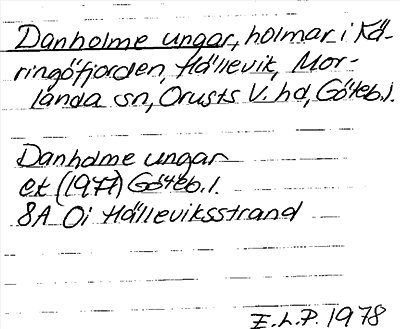 Danholme ungar, holmar i Kä-
ringöfjorden, Hällevik, Mor-
landa sn, Orusts V. hd, Göteb. l.
Danholme ungar
ek (1977) Göteb. l.
8A Oi Hälleviksstrand
E.L.P. 1978